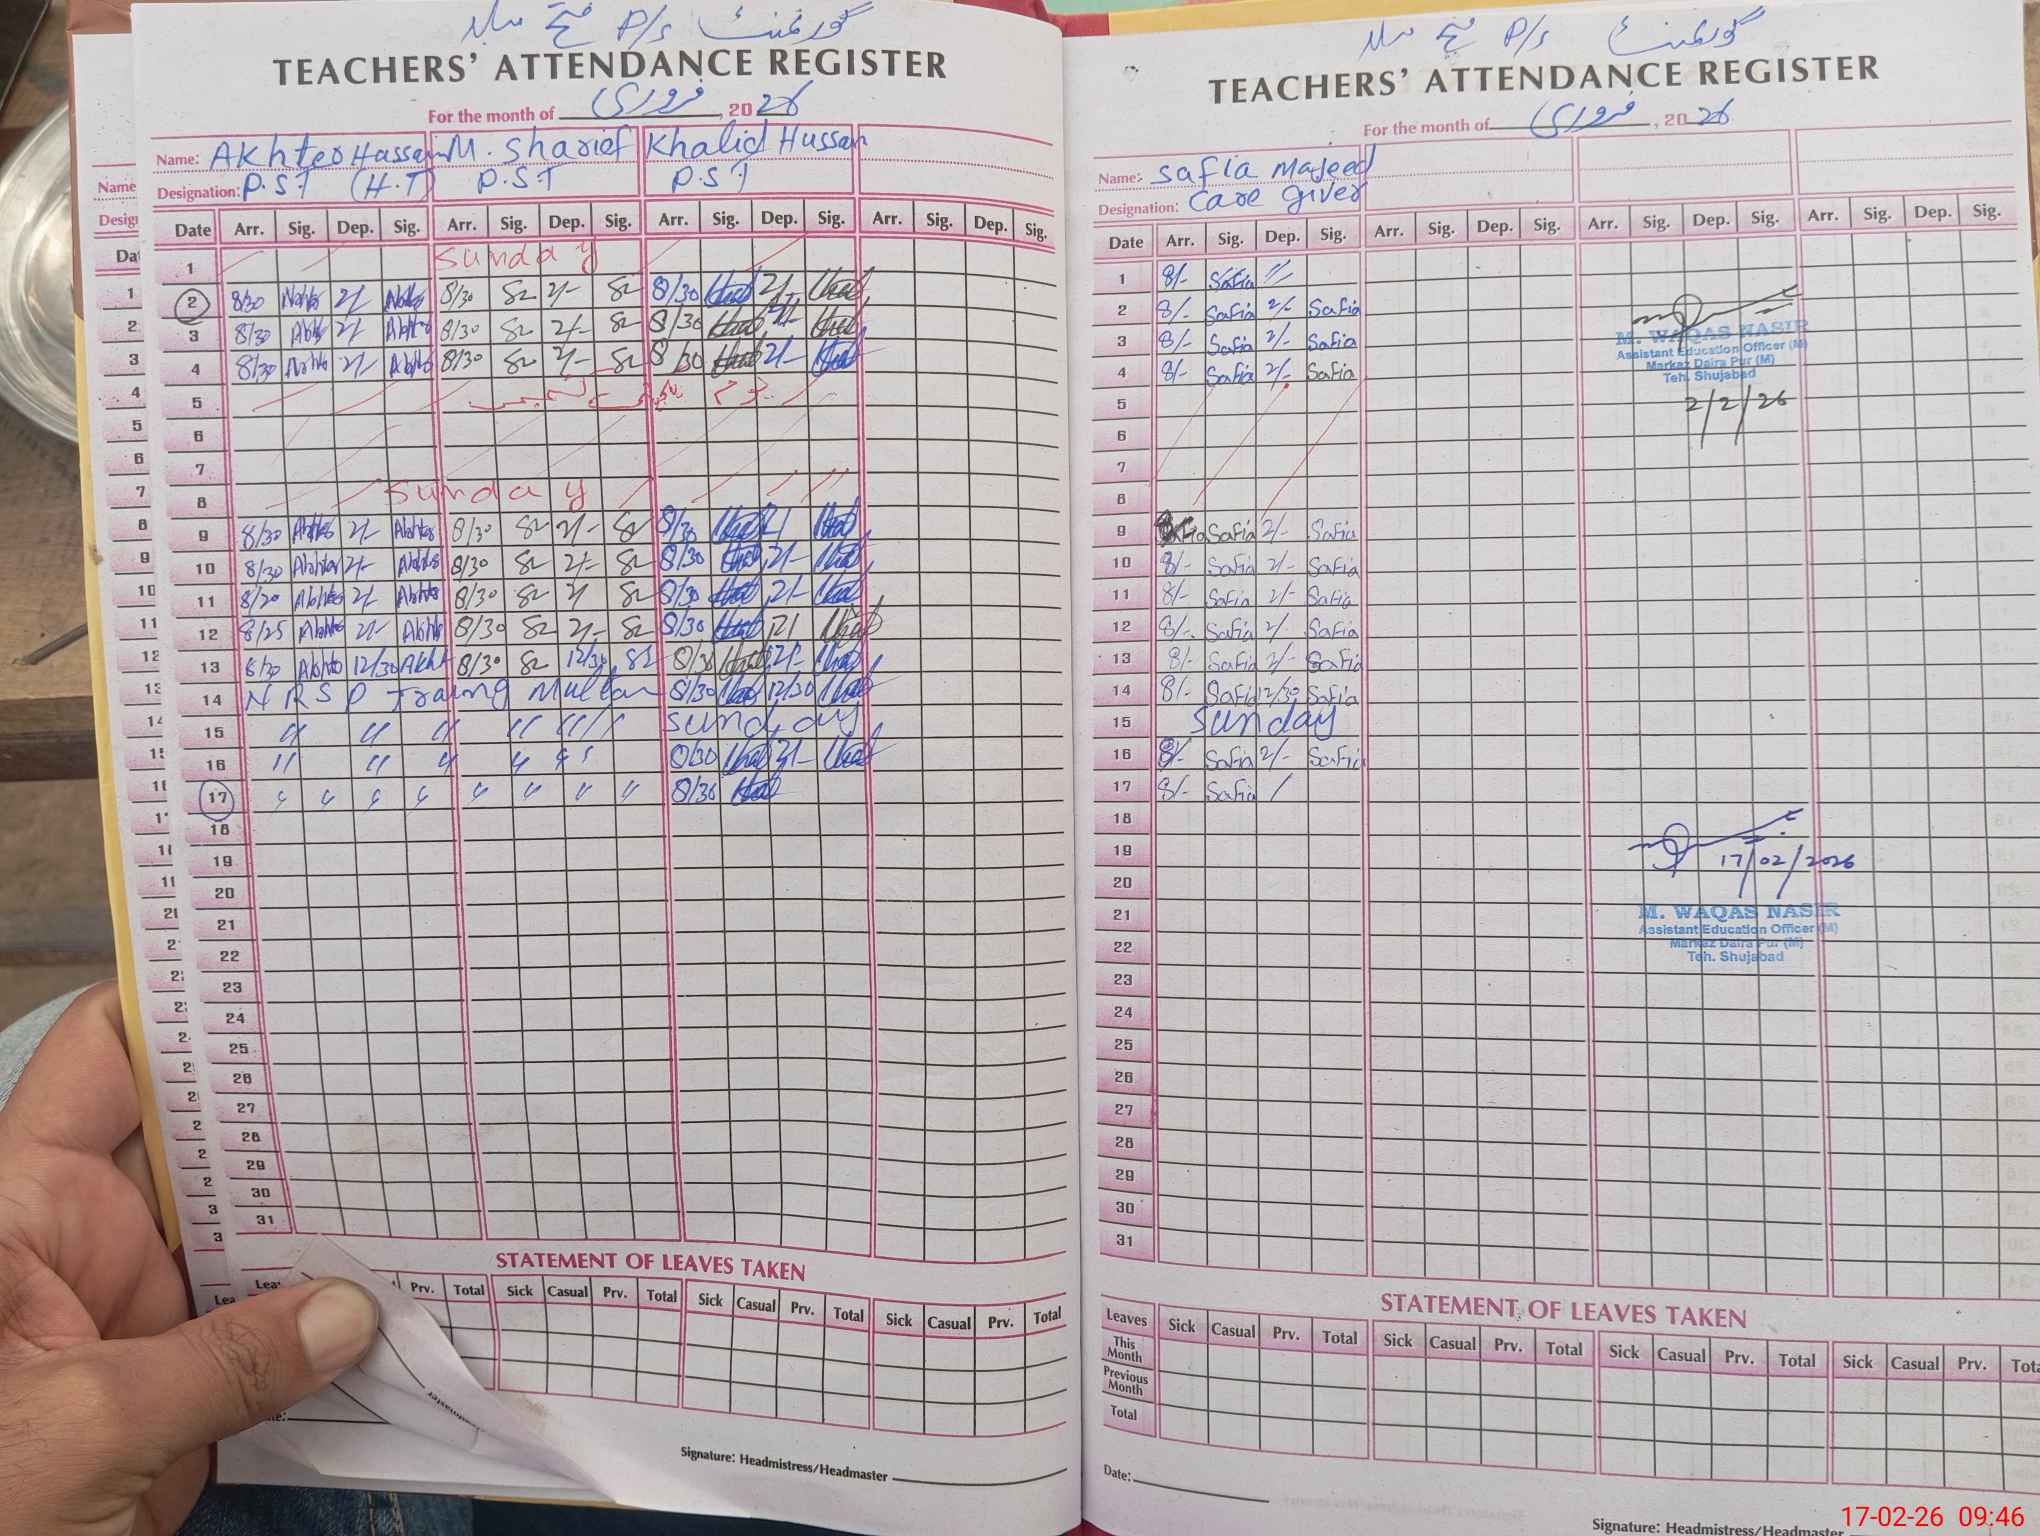 گورنمنٹ P/S فتح
TEACHERS' ATTENDANCE REGISTER
For the month of فروری, 2026
Name: Akhter Hassan M. Sharief Khalid Hussan
Designation: P.S.T (H.T) P.S.T P.S.T
Date Arr. Sig. Dep. Sig. Arr. Sig. Dep. Sig. Arr. Sig. Dep. Sig. Arr. Sig. Dep. Sig.
1 Sunday
2 8/30 2/- 8/30 2/- 8/30 2/-
3 8/30 2/- 8/30 2/- 8/30 2/-
4 8/30 2/- 8/30 2/- 8/30 2/-
5
6
7
8 Sunday
9 8/30 Akhter 2/- Akhter 8/30 2/- 8/30
10 8/30 Akhter 2/- Akhter 8/30 2/- 8/30 2/-
11 8/20 Akhter 2/- Akhter 8/30 2/ 8/30 2/-
12 8/25 Akhter 2/- Akhter 8/30 2/- 8/30 2/
13 8/30 Akhter 12/30 Akht 8/30 12/30 8/30 2/-
14 NRSP Traing Multan 8/30 12/30
15 " " " " " Sunday
16 " " " " " 8/30 2/-
17 " " " " " " " " 8/30
18
19
20
21
22
23
24
25
26
27
28
29
30
31
STATEMENT OF LEAVES TAKEN
Prv. Total Sick Casual Prv. Total Sick Casual Prv. Total Sick Casual Prv. Total
Signature: Headmistress/Headmaster
گورنمنٹ P/S فتح
TEACHERS' ATTENDANCE REGISTER
For the month of فروری, 2026
Name: Safia Majeed
Designation: Care giver
Date Arr. Sig. Dep. Sig. Arr. Sig. Dep. Sig. Arr. Sig. Dep. Sig. Arr. Sig. Dep. Sig.
1 8/- Safia //
2 8/- Safia 2/- Safia
3 8/- Safia 2/- Safia
4 8/- Safia 2/- Safia
M. WAQAS NASIR
Assistant Education Officer (M)
Markaz Daira Pur (M)
Teh. Shujabad
2/2/26
5
6
7
8
9 Safia 2/- Safia
10 8/- Safia 2/- Safia
11 8/- Safia 2/- Safia
12 8/- Safia 2/- Safia
13 8/- Safia 2/- Safia
14 8/- Safia 12/30 Safia
15 Sunday
16 8/- Safia 2/- Safia
17 8/- Safia /
18
19
17/02/2026
20
21
M. WAQAS NASIR
Assistant Education Officer (M)
Markaz Daira Pur (M)
Teh. Shujabad
22
23
24
25
26
27
28
29
30
31
STATEMENT OF LEAVES TAKEN
Leaves Sick Casual Prv. Total Sick Casual Prv. Total Sick Casual Prv. Total Sick Casual Prv.
This Month
Previous Month
Total
Date:
Signature: Headmistress/Headmaster
17-02-26 09:46